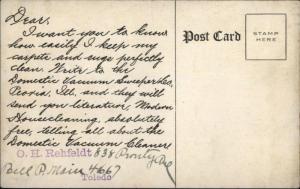 Dear,
I want you to know
how easily I keep my
carpets and rugs perfectly
clean. Write to the
Domestic Vacuum Sweeper Co.,
Peoria, Ill. and they will
send you literature, Modern
Housecleaning, absolutely
free, telling all about the
Domestic Vacuum Cleaners
O. H. Rehfeldt 838 Prouty Ave
Bell P. Main 4667
Toledo
Post Card
STAMP
HERE